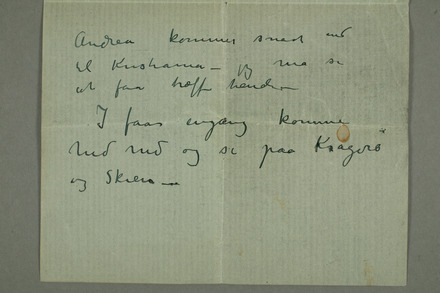 Andrea kommer snart ind
til Kristiania – jeg maa se
at faa træffe hende –
I faar engang komme
ned og se paa Kragerö
og Skien –